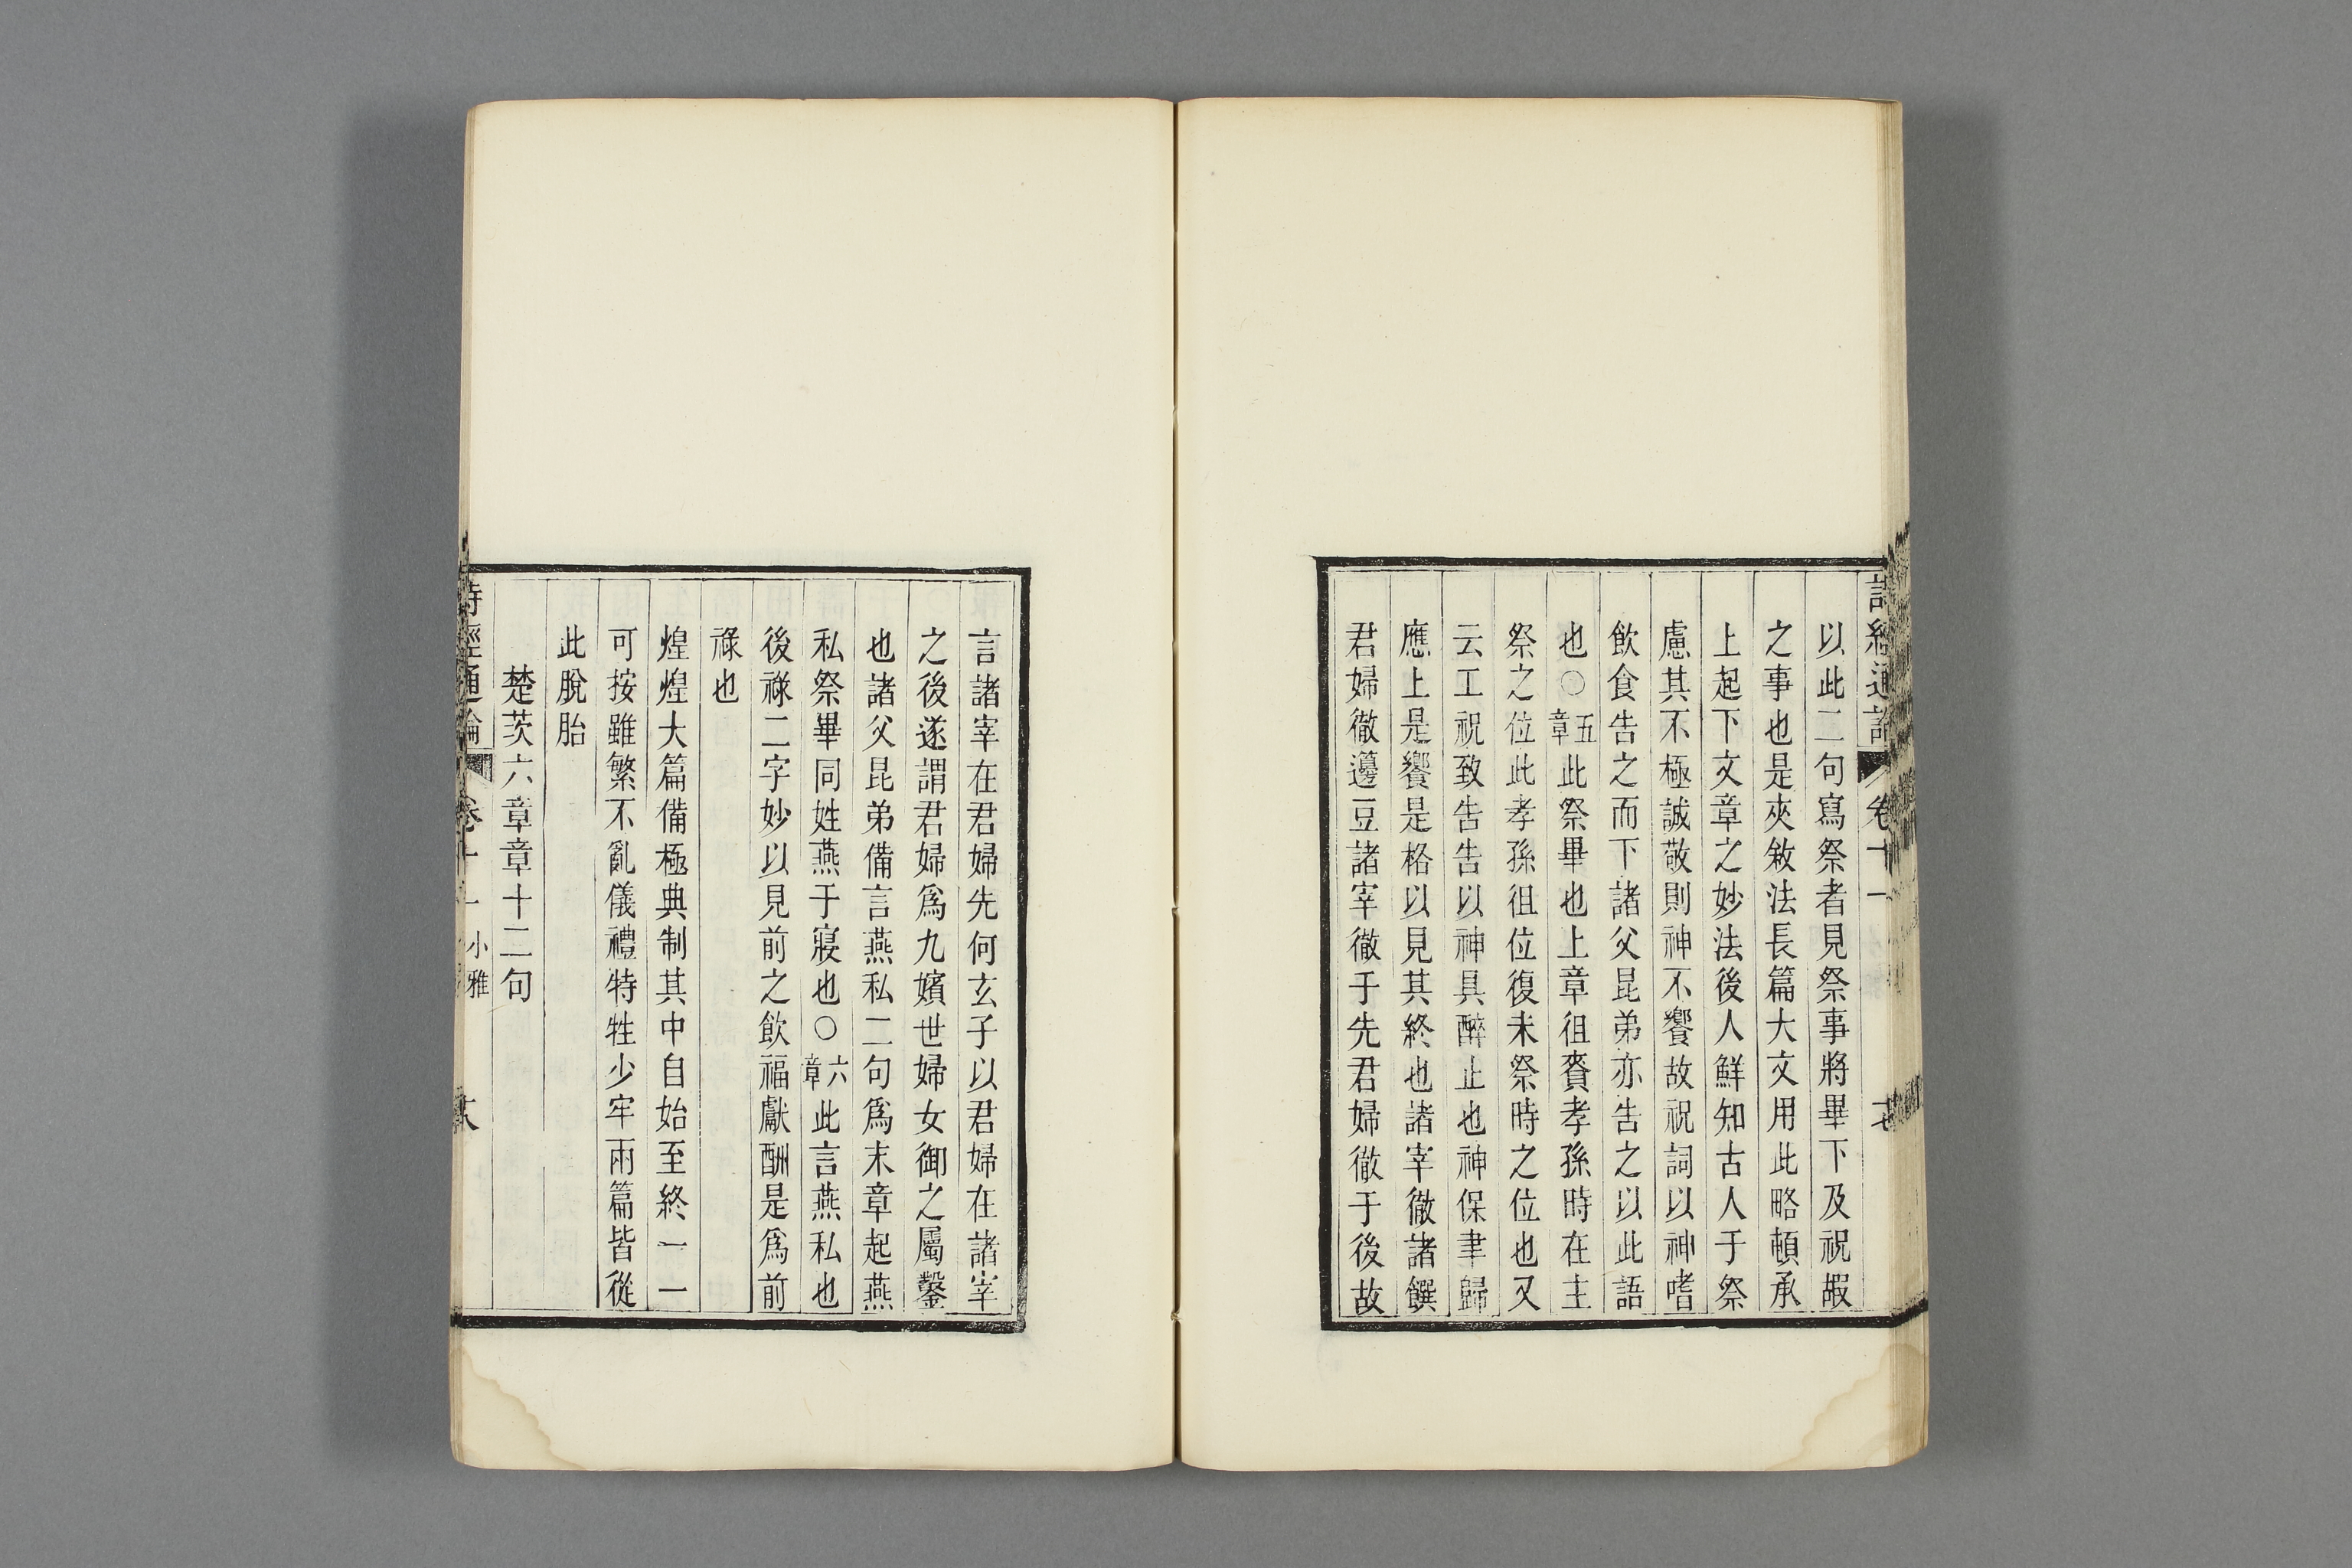 詩經通論 卷十一 十七
以此二句寫祭者見祭事將畢下及祝嘏
之事也是夾敘法長篇大文用此略頓承
上起下文章之妙法後人鮮知古人于祭
慮其不極誠敬則神不饗故祝詞以神嗜
飲食告之而下諸父昆弟亦告之以此語
也○五章此祭畢也上章徂賚孝孫時在主
祭之位此孝孫徂位復未祭時之位也又
云工祝致告告以神具醉止也神保聿歸
應上是饗是格以見其終也諸宰徹諸饌
君婦徹籩豆諸宰徹于先君婦徹于後故
言諸宰在君婦先何玄子以君婦在諸宰
之後遂謂君婦爲九嬪世婦女御之屬鑿
也諸父昆弟備言燕私二句爲末章起燕
私祭畢同姓燕于寢也○六章此言燕私也
後祿二字妙以見前之飲福獻酬是爲前
祿也
煌煌大篇備極典制其中自始至終一一
可按雖繁不亂儀禮特牲少牢兩篇皆從
此脫胎
楚茨六章章十二句
詩經通論 卷十一 小雅 十八